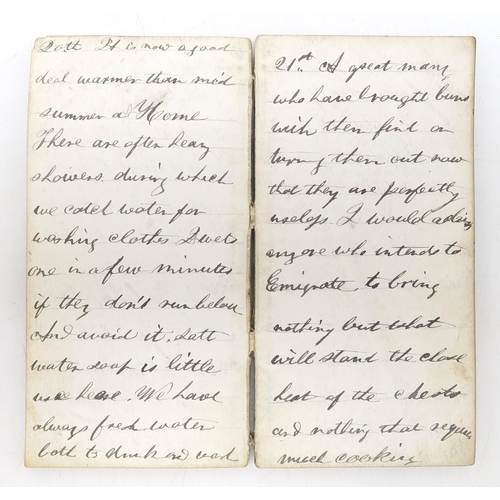 20th It is now a good
deal warmer than mid
summer at Home
There are often heavy
showers during which
we catch water for
washing clothes I wets
one in a few minutes
if they don't run below
and avoid it, Salt
water soap is little
use here. We have
always fresh water
both to drink and wash
21st A great many
who have brought buns
with them find on
turning them out now
that they are perfectly
useless I would advise
anyone who intends to
Emigrate, to bring
nothing but what
will stand the close
heat of the chests
and nothing that requires
much cooking